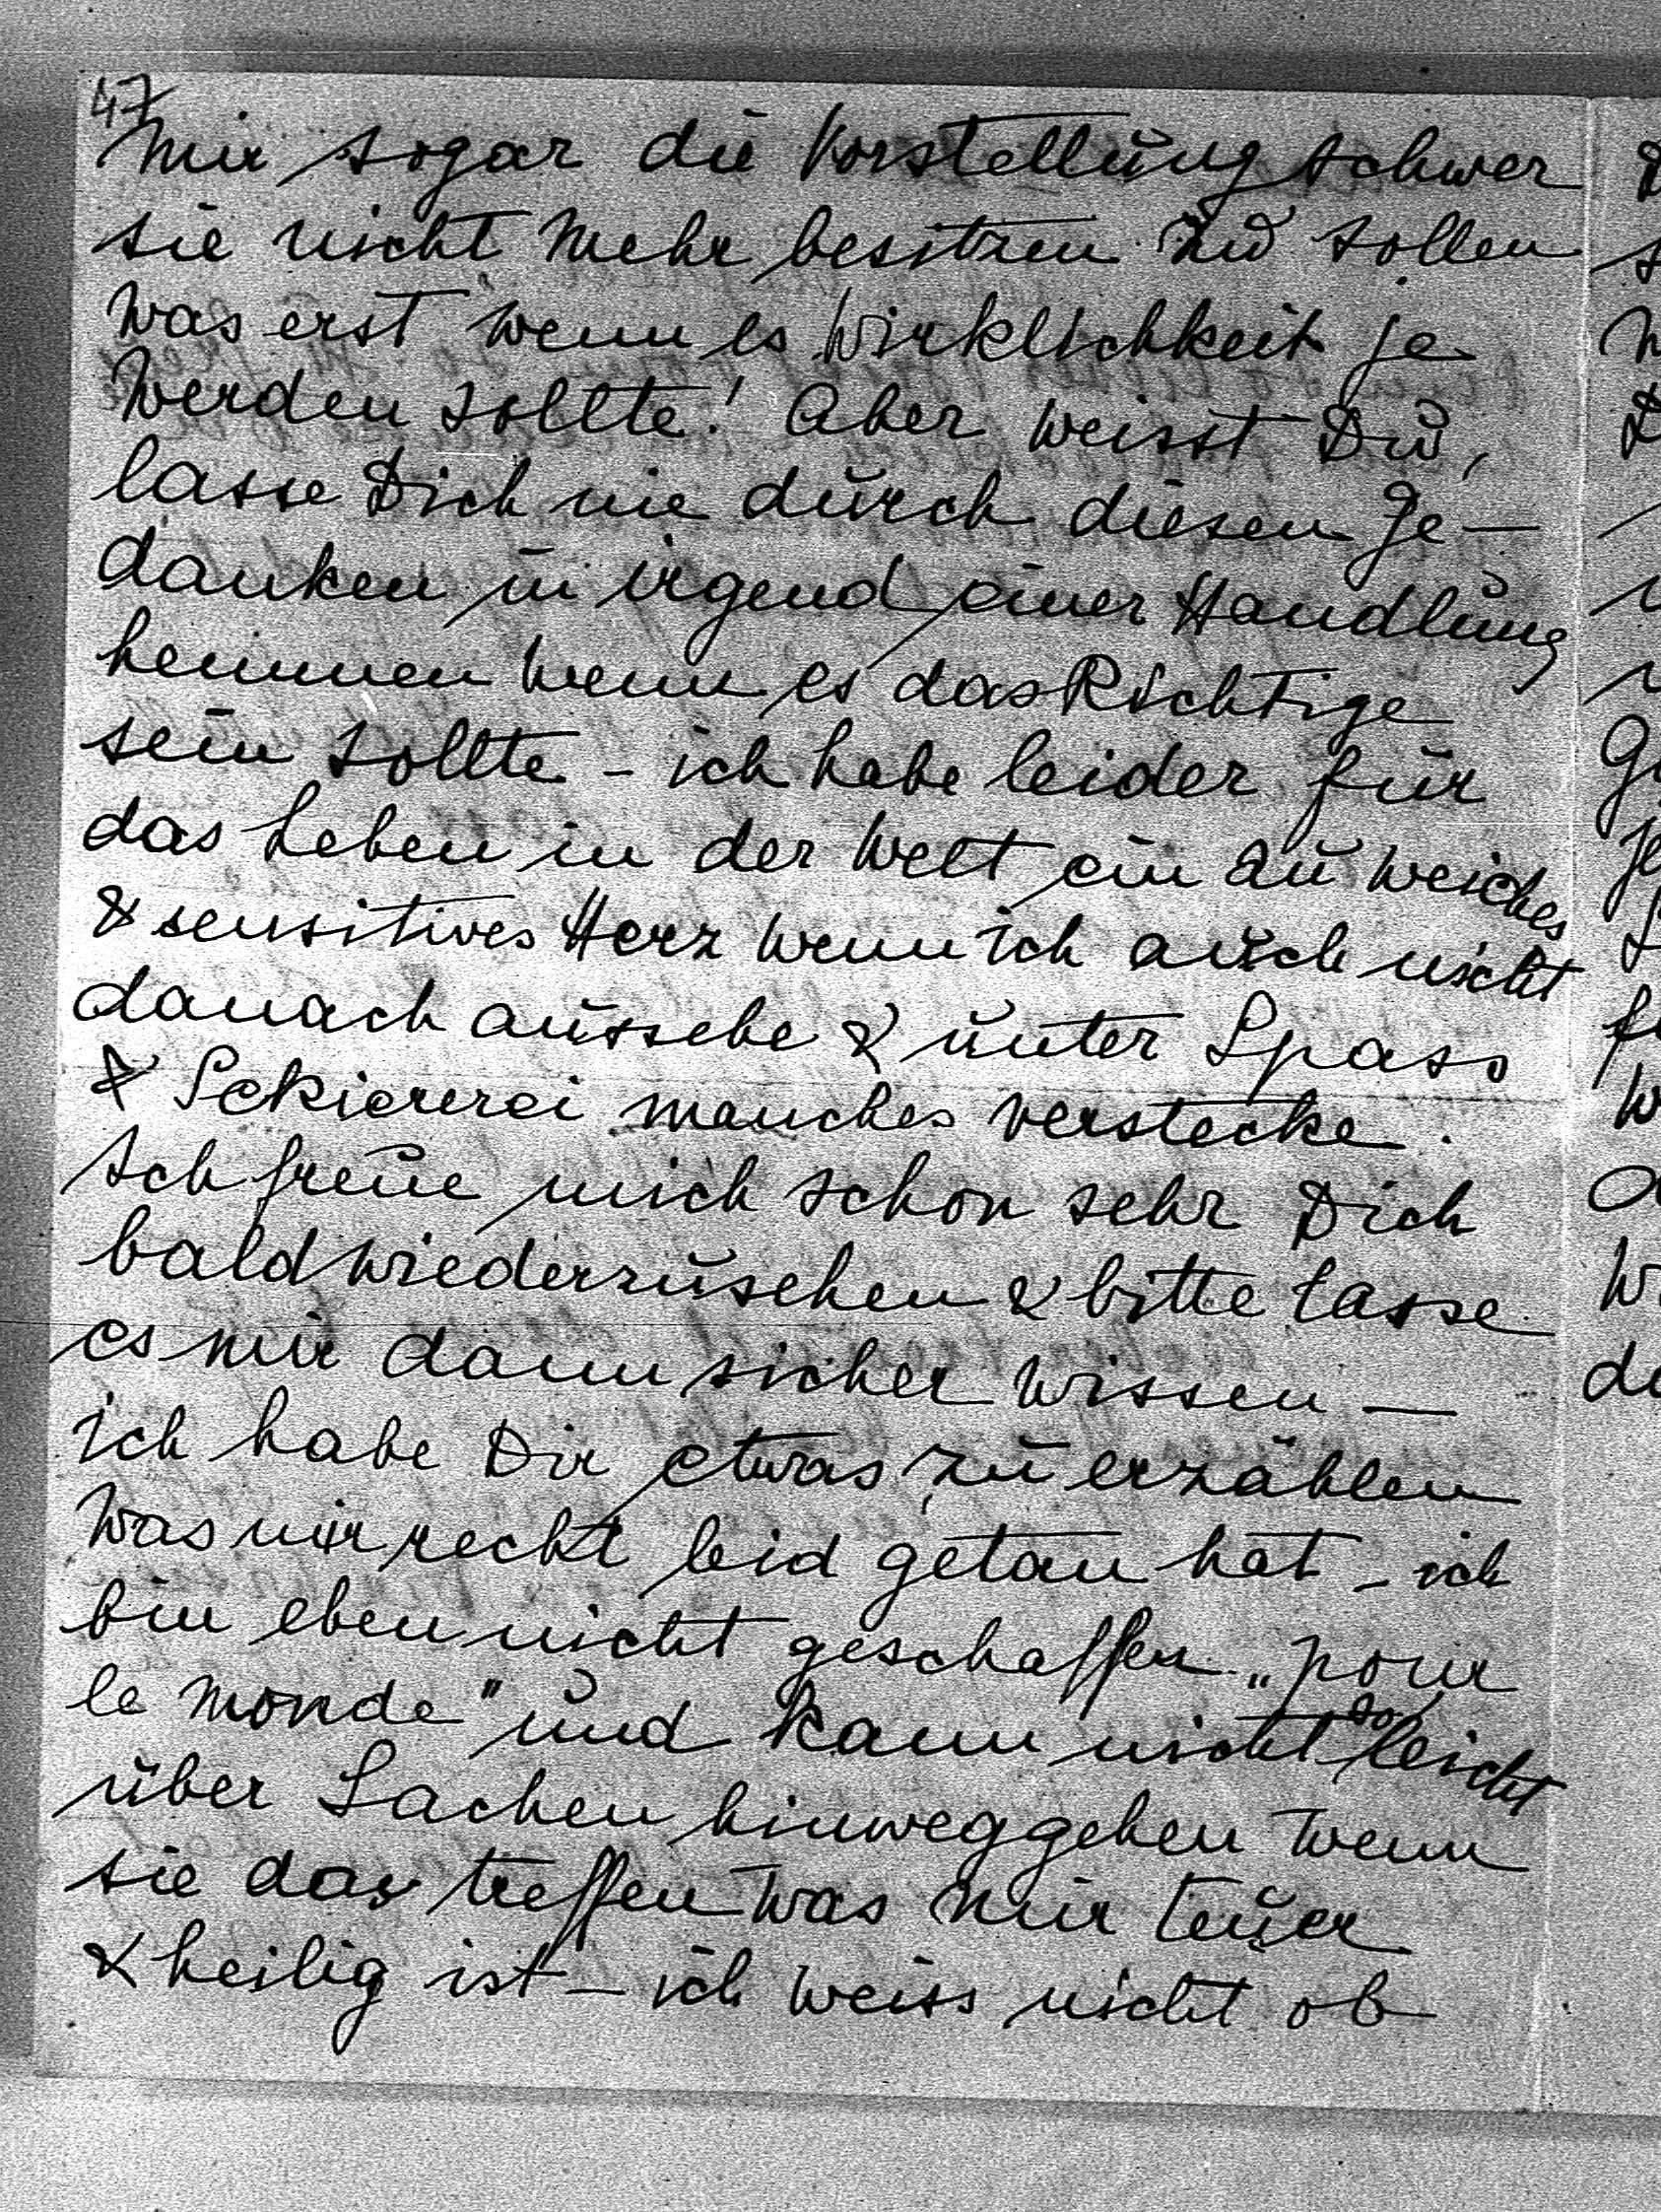 47
mir sogar die Vorstellung schwer
sie nicht mehr besitzen zu sollen
was erst wenn es Wirklichkeit je
werden sollte! Aber weisst Du,
lasse Dich nie durch diesen Ge-
danken in irgend einer Handlung
hemmen wenn es das Richtige
sein sollte - ich habe leider für
das Leben in der Welt ein zu weiches
& sensitives Herz wenn ich auch nicht
danach aussehe & unter Spass
& Sekiererei manches verstecke.
Ich freue mich schon sehr Dich
bald wiederzusehen & bitte lasse
es mir dann sicher wissen —
ich habe Dir etwas zu erzählen
was mir recht leid getan hat - ich
bin eben nicht geschaffen „pour
le monde" und kann nicht so leicht
über Sachen hinweggehen wenn
sie das treffen was mir teuer
& heilig ist - ich weiss nicht ob